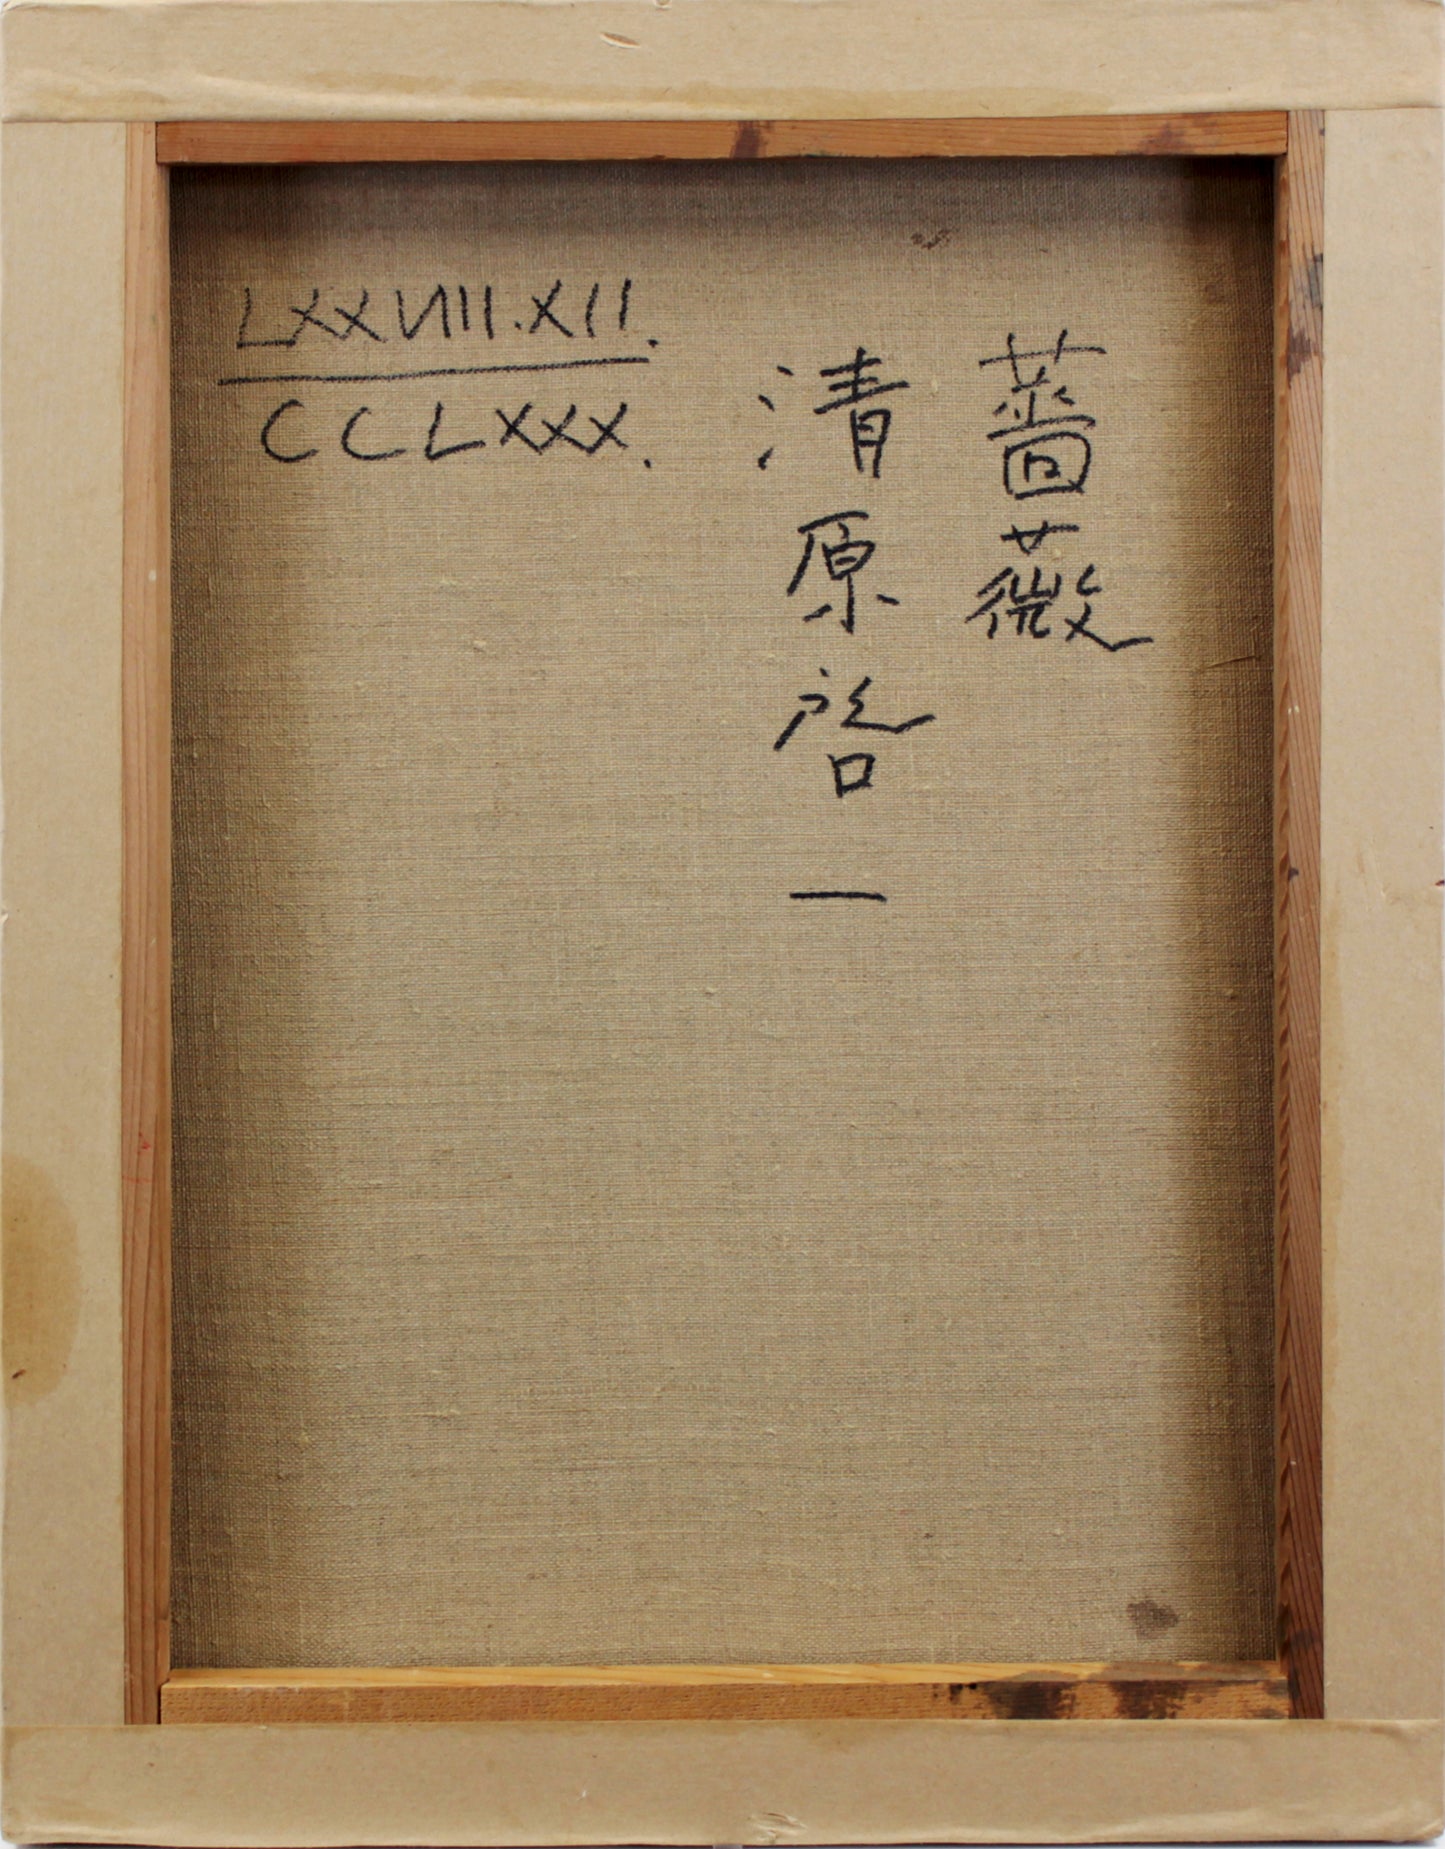 LXXVIII.XII.
CCLXXX.
薔薇
清原啓一